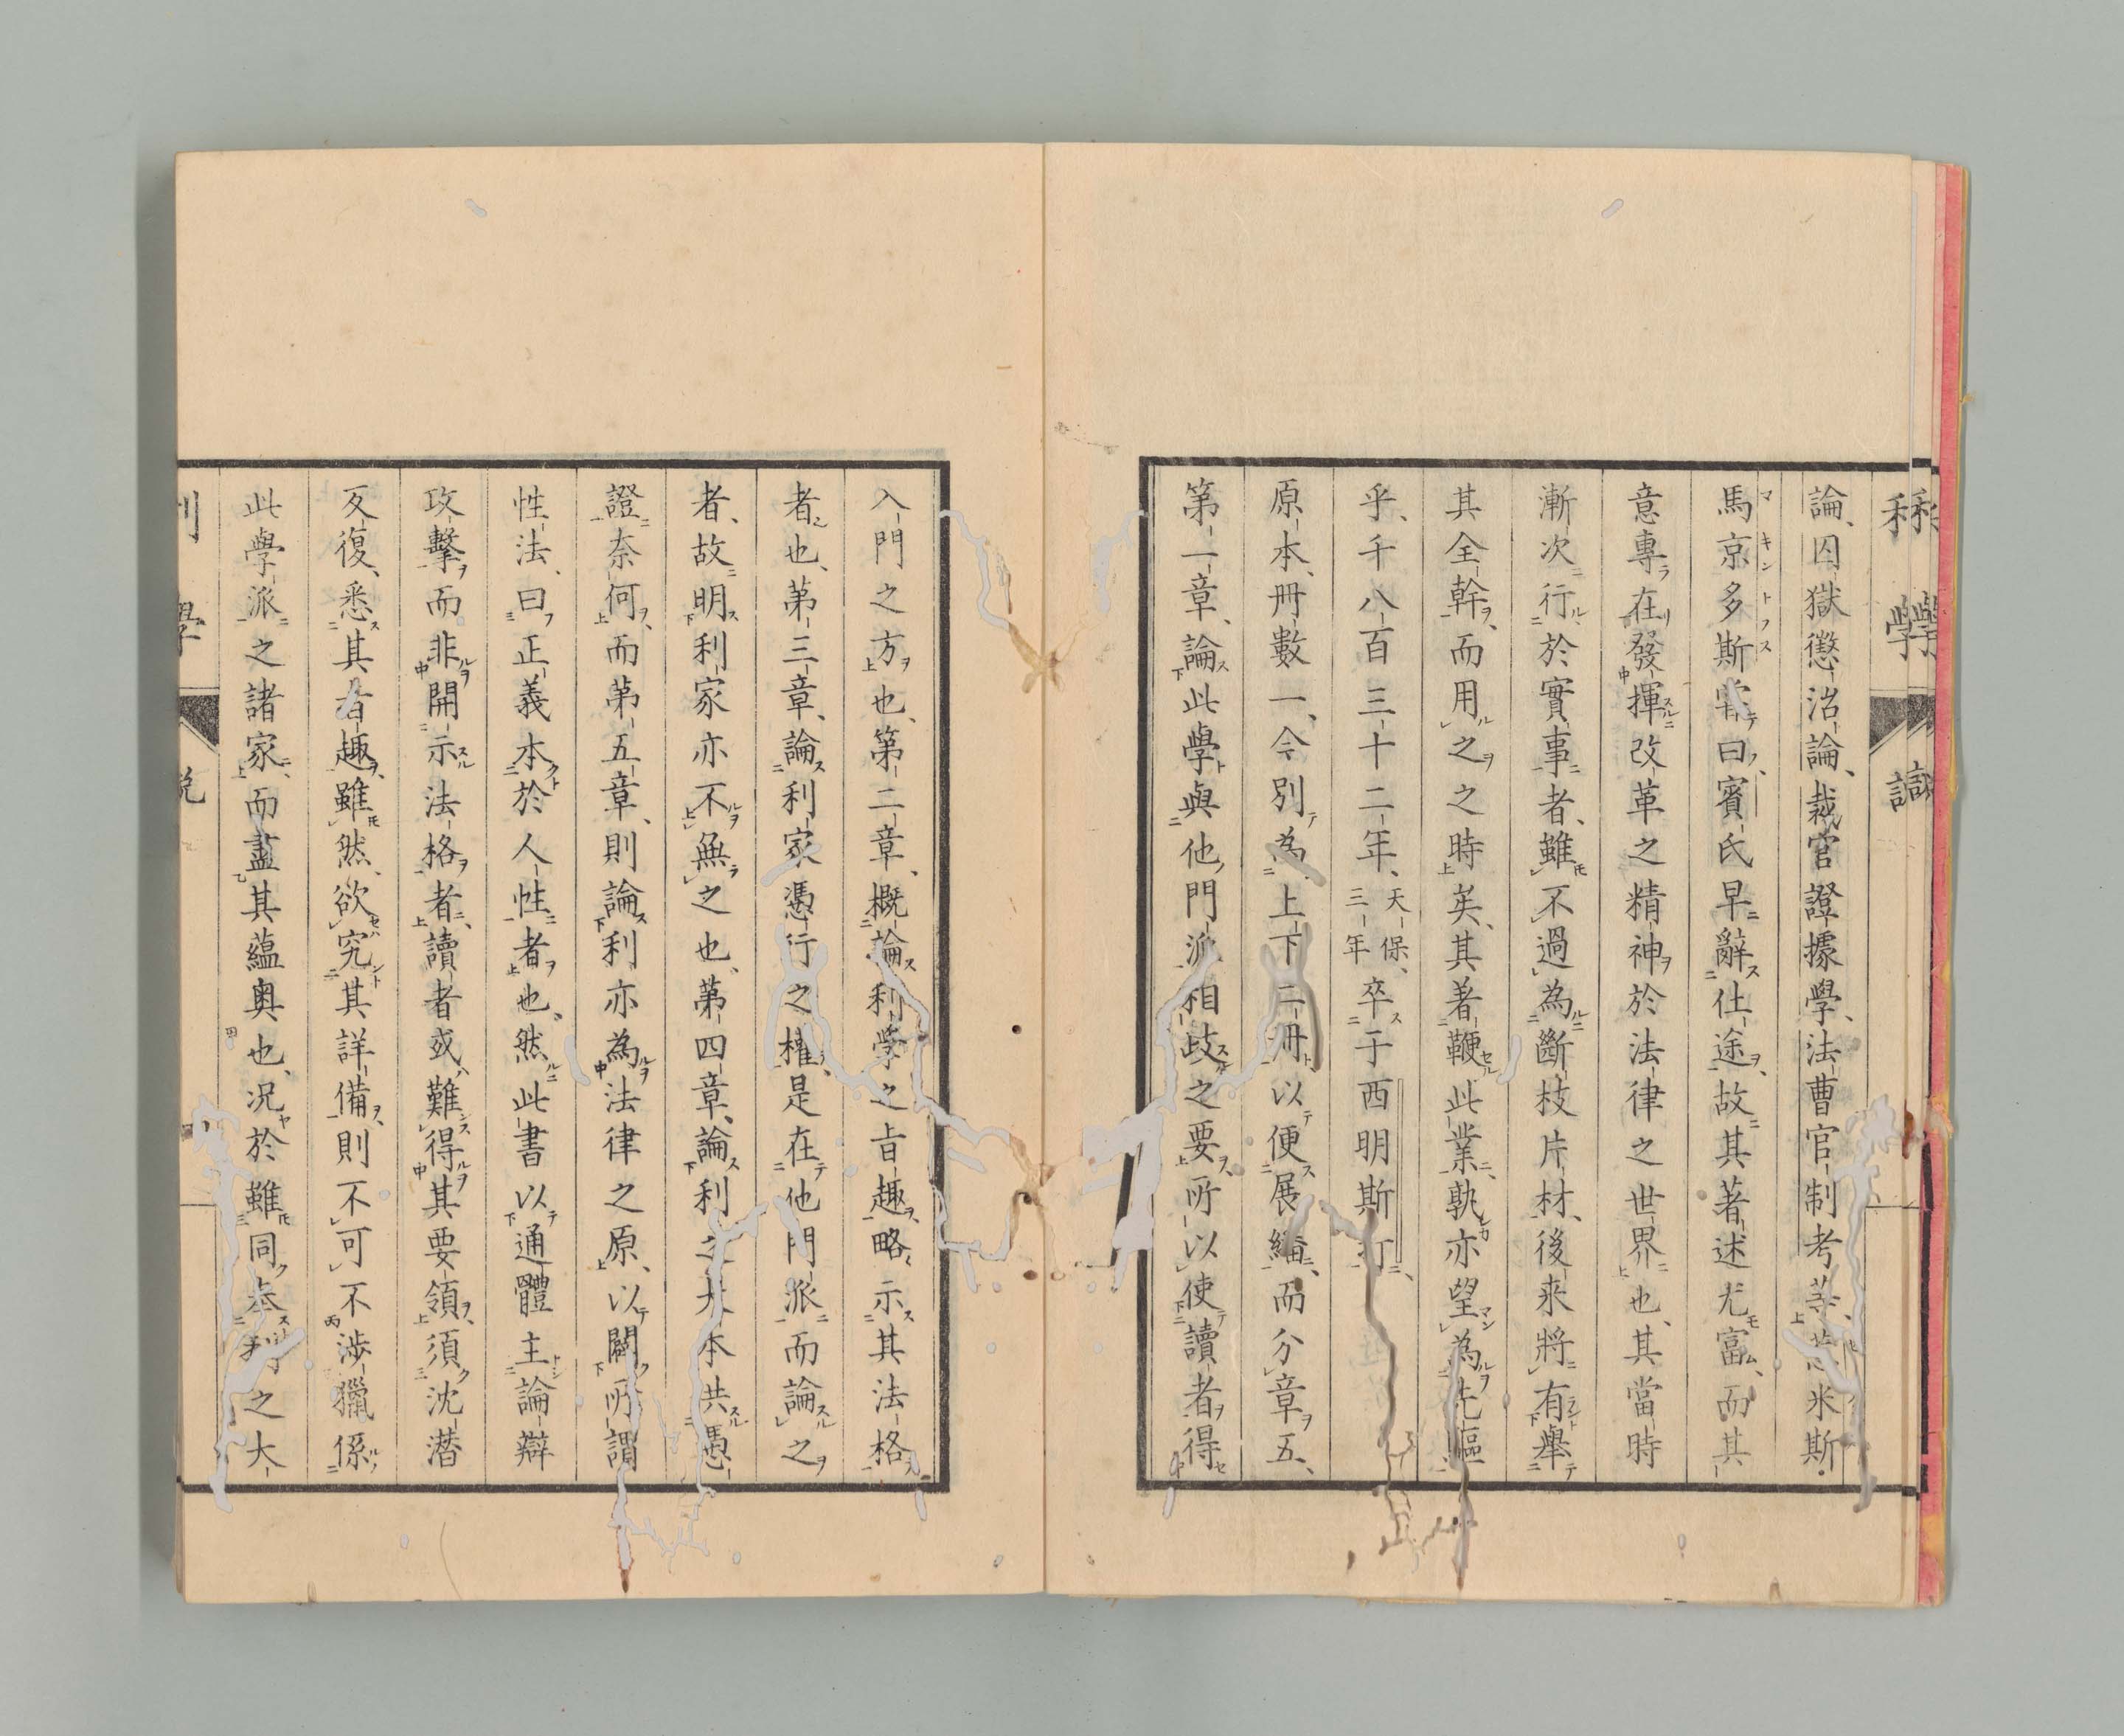 論、囚獄懲治論、裁官證據學、法曹官制考等、慈米斯
馬京多斯嘗曰、賓氏早辭仕途、故其著述尤富、而其
意專在發揮改革之精神於法律之世界也、其當時
漸次行於實事者、雖不過為斷枝片材、後来將有舉
其全幹、而用之之時矣、其著鞭此業、孰亦望為先驅
乎、千八百三十二年、天保、三年卒于西明斯
原本、冊數一、今別為上下二冊、以便展編、而分章五、
第一章、論此學與他門派相歧之要、所以使讀者得
入門之方也、第二章、概論利學之旨趣、略示其法格
者也、第三章、論利家憑行之權、是在他門派而論之
者、故明利家亦不無之也、第四章、論利之大本共憑
證奈何、而第五章、則論利亦為法律之原、以闢所謂
性法、曰正義本於人性者也、然此書以通體主論辯
攻擊而非開示法格者、讀者或難得其要領、須沈潜
反復、悉其旨趣、雖然、欲究其詳備、則不可不涉獵係
此學派之諸家、而盡其蘊奥也、况於雖同本利之大
利學
説